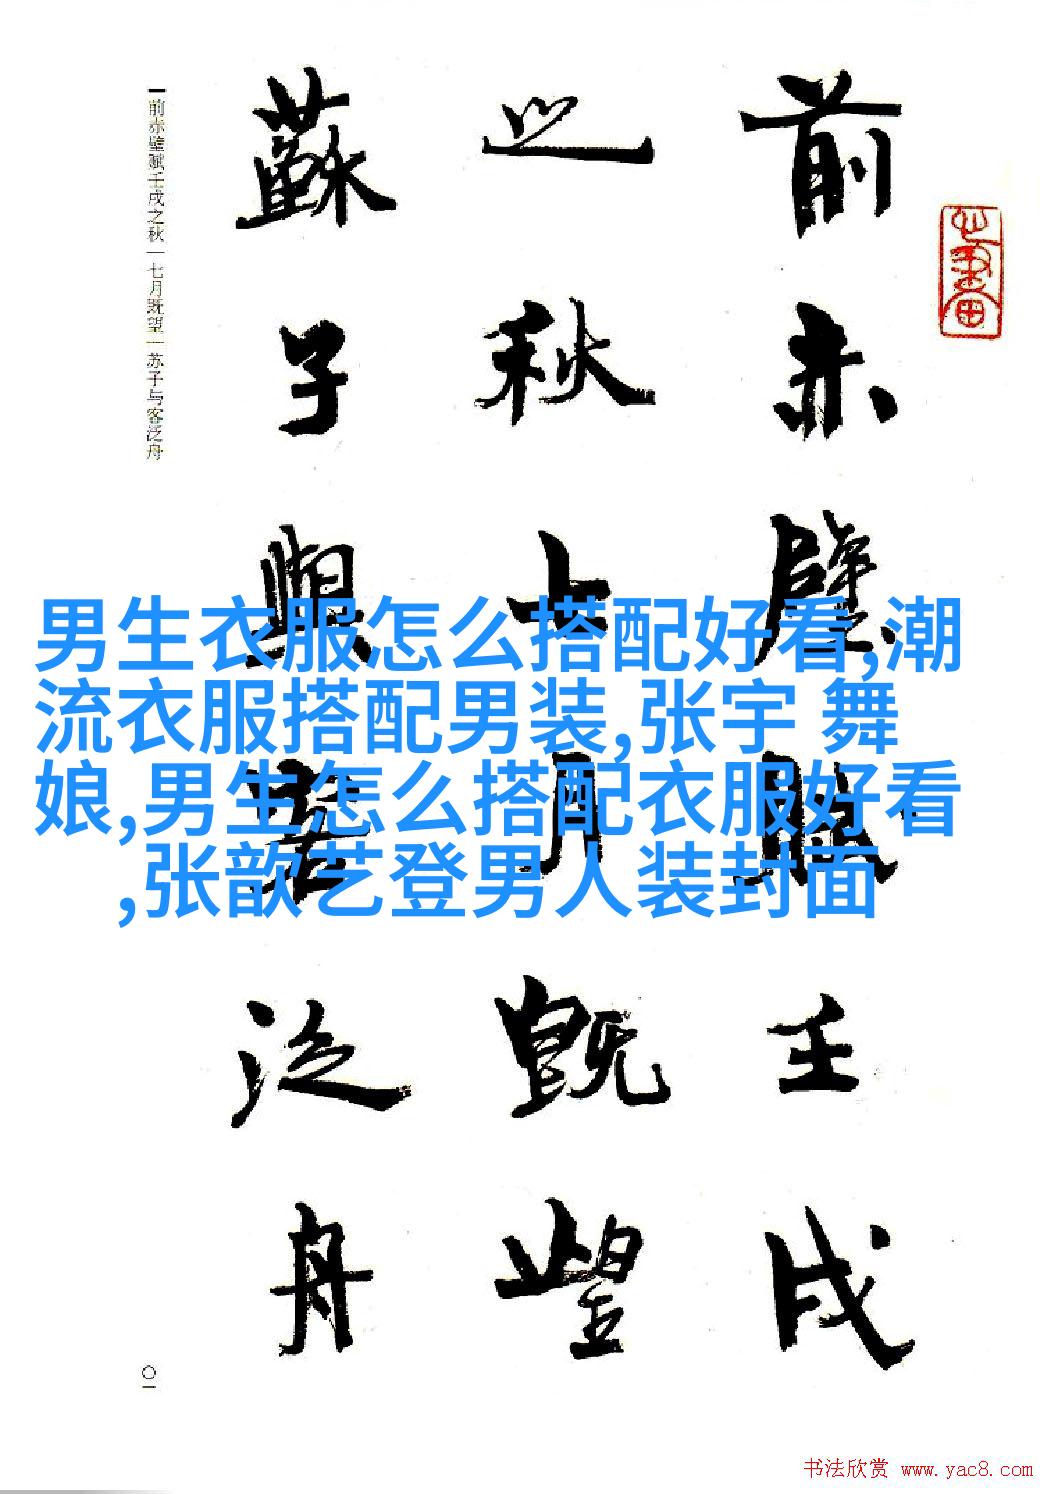 前赤壁賦壬戌
之秋七月既望
蘇子與客泛舟
前赤壁赋壬戌之秋|七月既望|苏子与客泛舟
〇一
男生衣服怎么搭配好看,潮
流衣服搭配男装,张宇 舞
娘,男生怎么搭配衣服好看
,张歆艺登男人装封面
书法欣赏 www.yac8.com